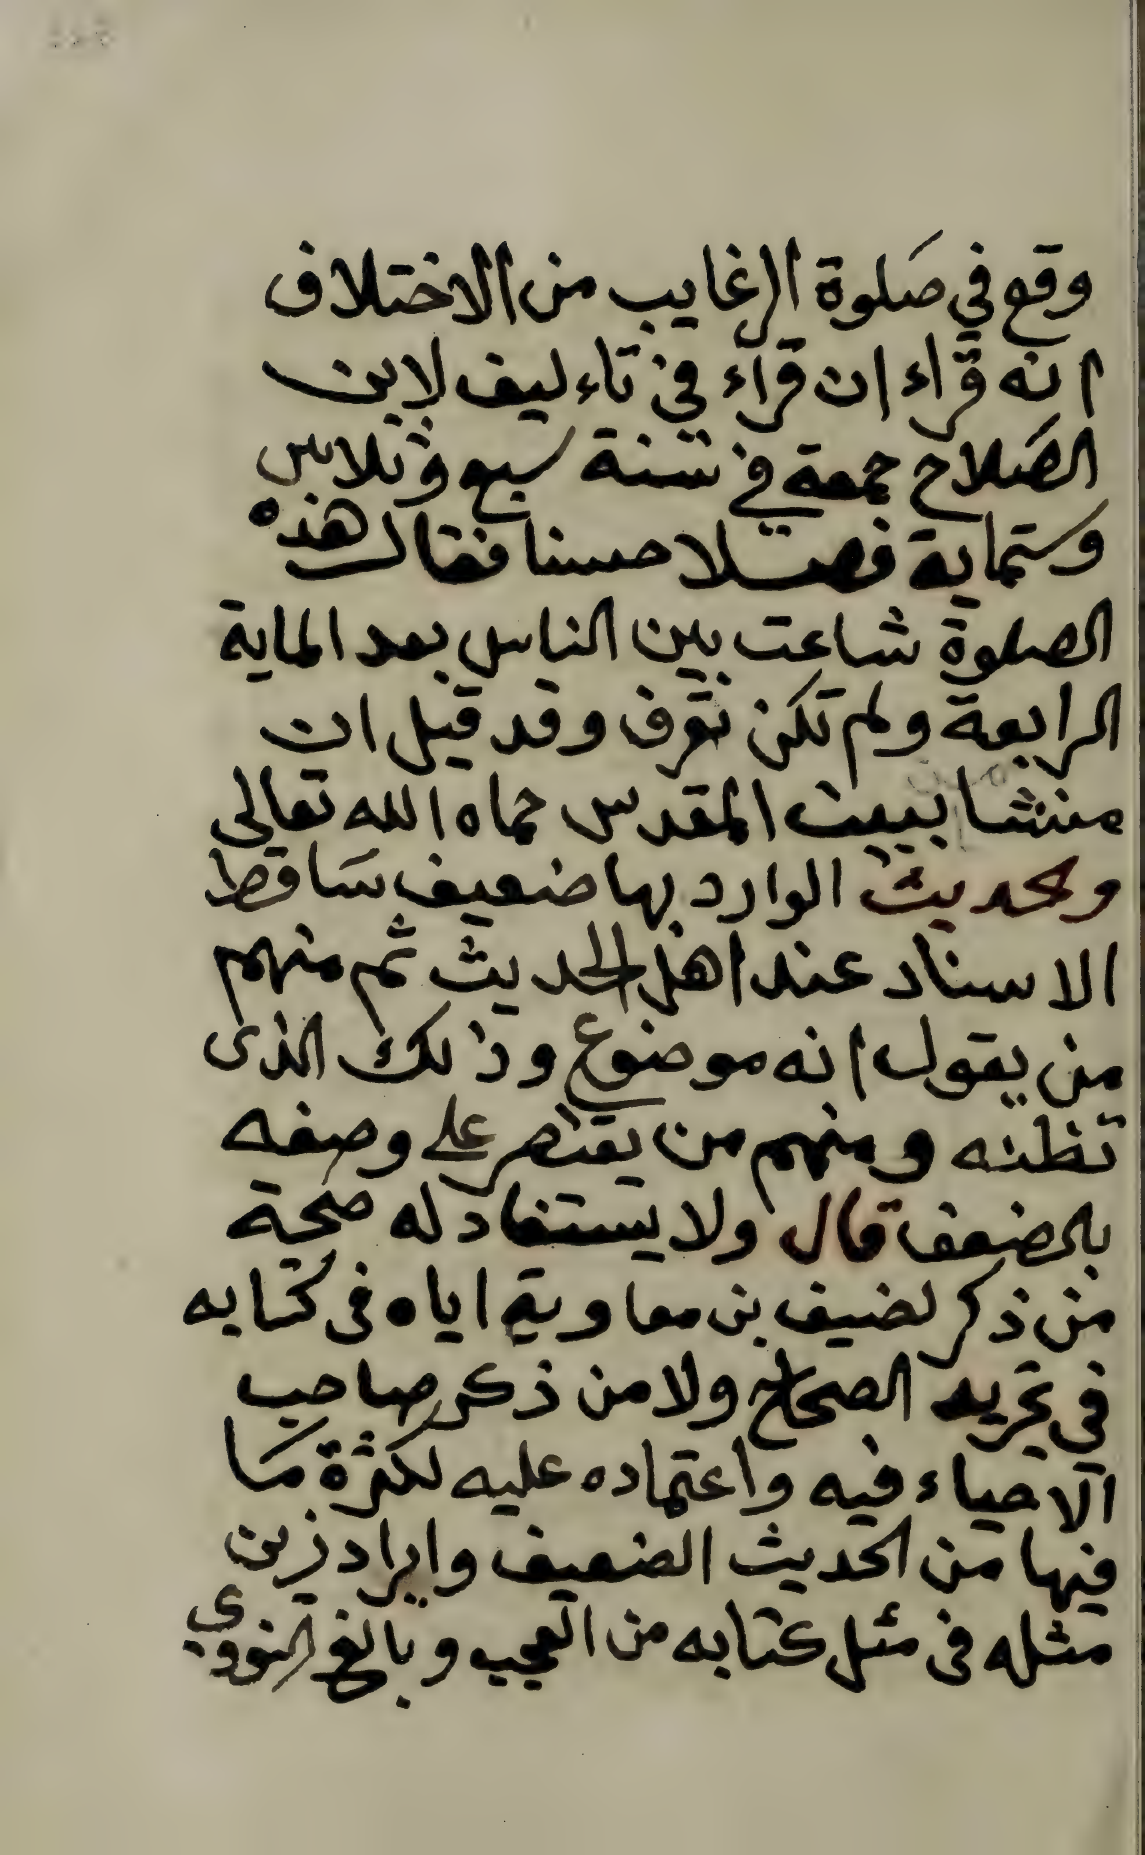 وقع في صلوة الرغايب من الاختلاف
انه قراء ان قراء في تاءليف لابن
الصلاح جمعة في سنة سبع وثلاثين
وستماية فصلا حسنا فقال هذه
الصلوة شاعت بين الناس بعد الماية
الرابعة ولم تكن تعرف وقد قيل ان
منشا ببيت المقدس حماه الله تعالى
وحديث الوارد بها ضعيف ساقط
الاسناد عند اهل الحديث ثم منهم
من يقول انه موضوع وذلك الذى
تظنه ومنهم من يقتصر على وصفه
بالضعف قال ولا يستفاد له صحة
من ذكر بن معاوية اياه فى كتابه
في تجريد الصحاح ولا من ذكر صاحب
الاحياء فيه واعتماده عليه لكثرة ما
فيها من الحديث الضعيف وايراد زين
مثله فى مثل كتابه من العجب وبالغ النووي